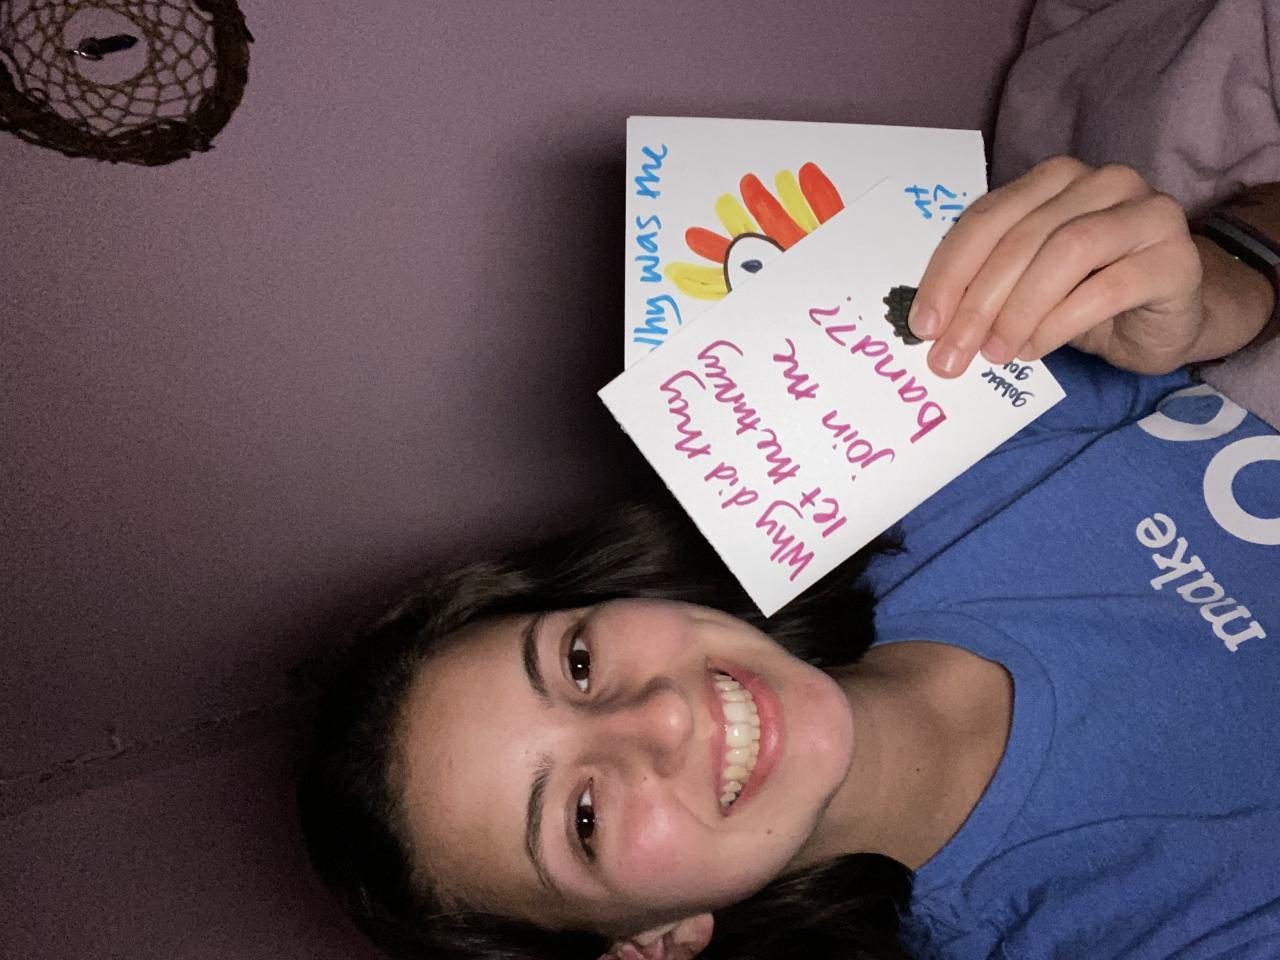 Why did they
let the turkey
join the
band??
gobble
Why was the
make